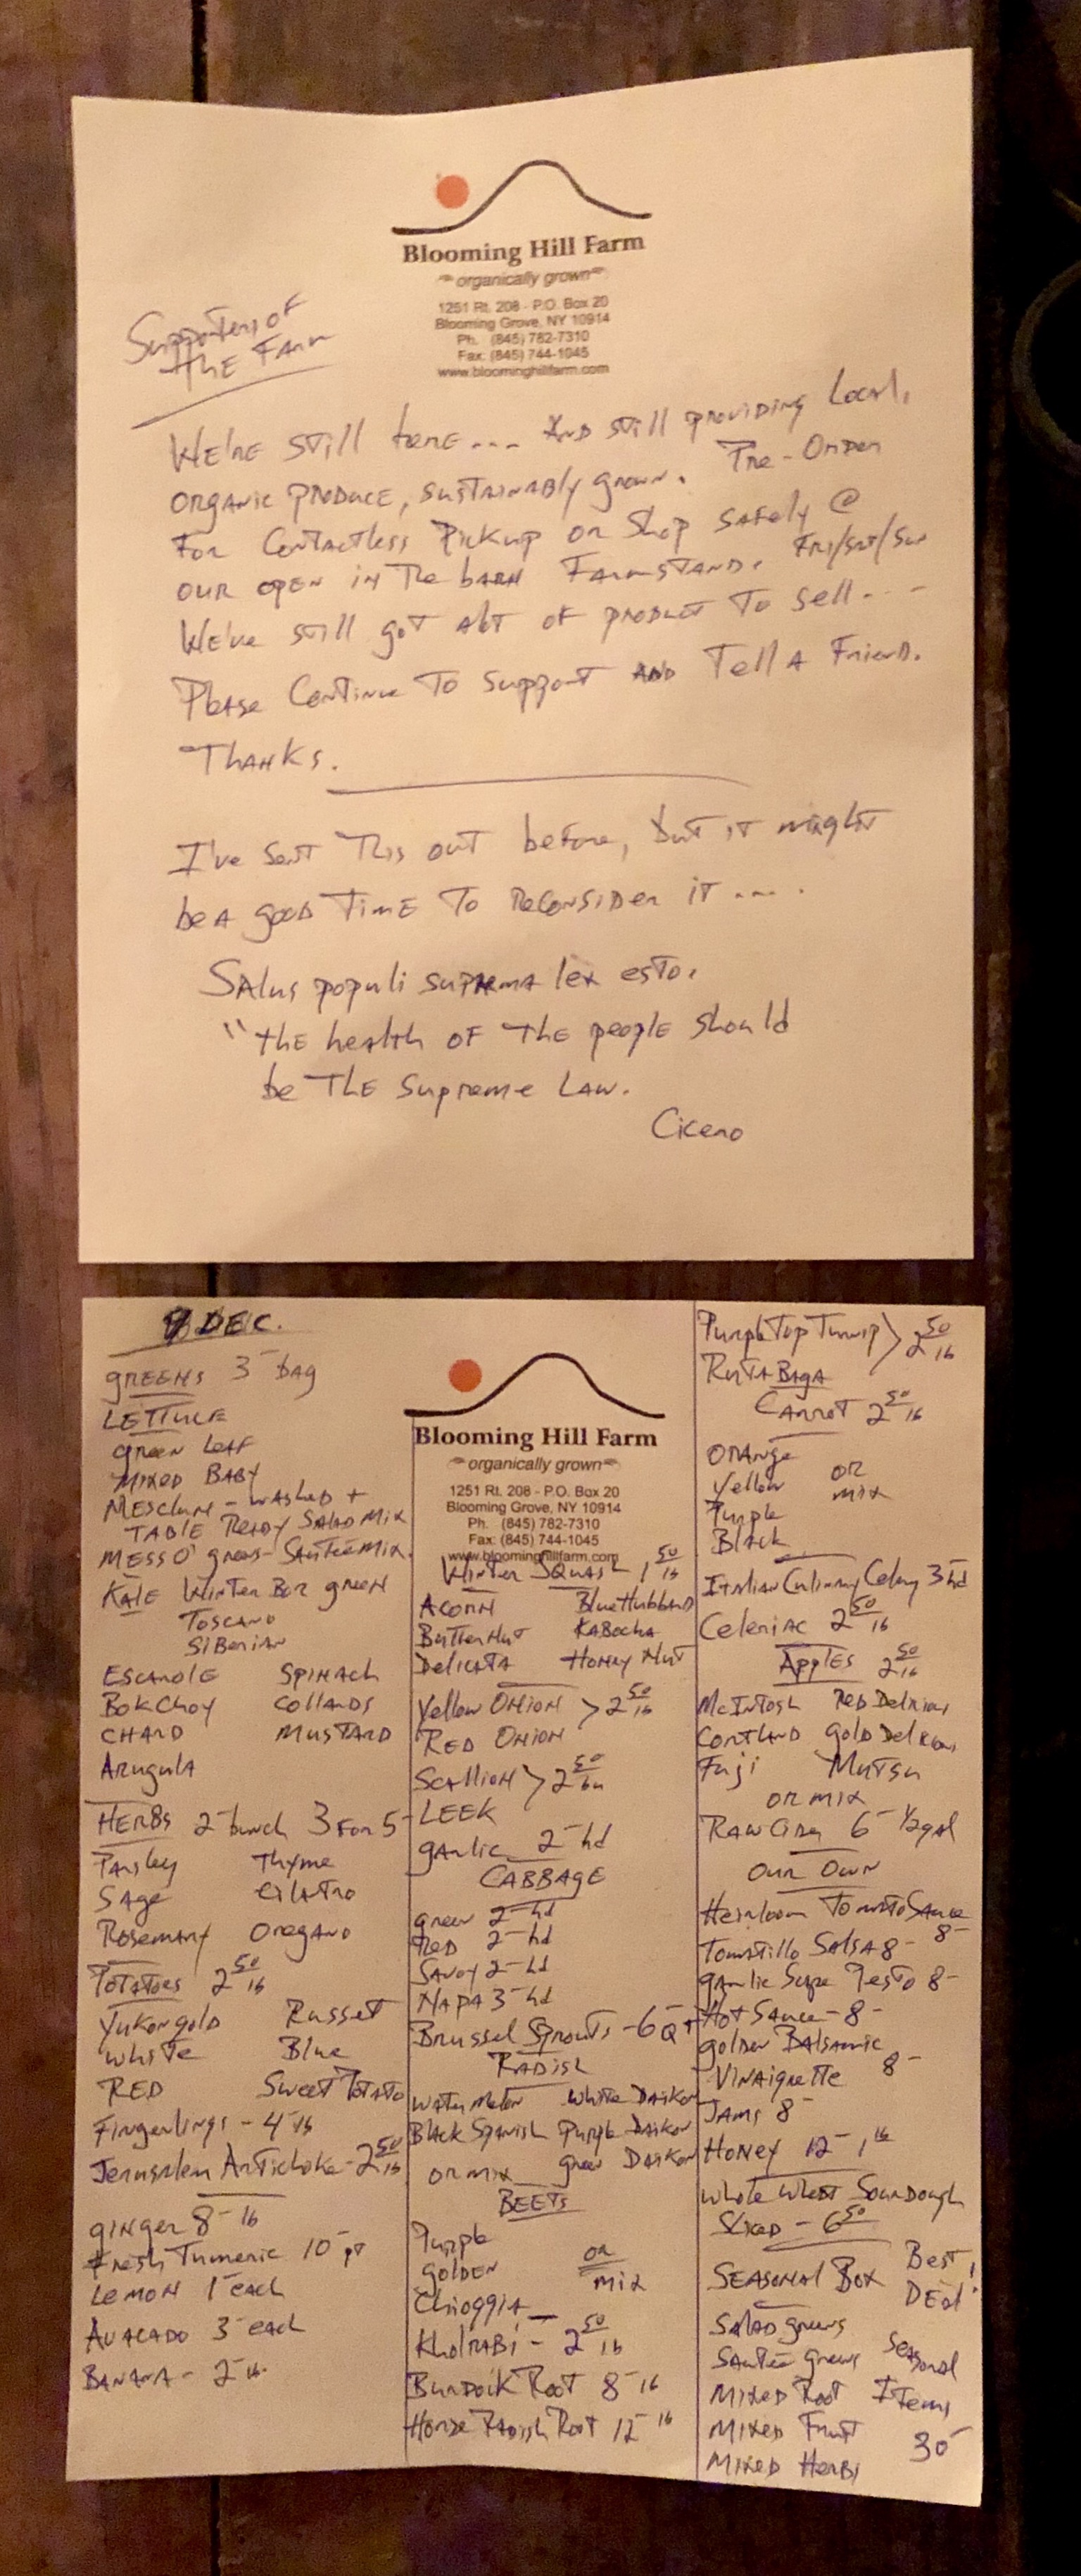 Blooming Hill Farm
organically grown
1251 Rt. 208 - P.O. Box 20
Blooming Grove, NY 10914
Ph. (845) 782-7310
Fax: (845) 744-1045
www.bloominghillfarm.com
Supporters of
the Farm
We're still here... And still providing Local,
organic produce, sustainably grown. Pre-Order
For Contactless Pickup or Shop safely @
our open in the barn Farmstand. Fri/Sat/Sun
We've still got alot of product to sell...-
Please Continue To Support AND Tell A Friend.
Thanks.
I've sent This out before, but it might
be A good Time To Reconsider it ....
Salus populi suprema lex esto.
"the health of the people should
be The Supreme Law.
Cicero
9 DEC.
GREENS 3- bag
LETTUCE
green Leaf
MIXED BABY
Mesclun - washed +
TABLE Ready Salad Mix
MESS O' greens - Sautee Mix
KALE Winter Bor green
Toscano
Siberian
ESCAROLE Spinach
BokChoy Collards
CHARD MUSTARD
Arugula
HERBS 2- bunch 3 For 5-
Parsley Thyme
Sage Cilantro
Rosemary Oregano
Potatoes 2 50 lb
Yukon gold Russet
White Blue
RED Sweet Potato
Fingerlings - 4- lb
Jerusalem Artichoke - 2 50 lb
GINGER 8- lb
Fresh Tumeric 10- pt
Lemon 1- each
Avacado 3- each
BANANA - 2- lb.
Blooming Hill Farm
organically grown
1251 Rt. 208 - P.O. Box 20
Blooming Grove, NY 10914
Ph. (845) 782-7310
Fax: (845) 744-1045
www.bloominghillfarm.com
Winter Squash 1 50 lb
Acorn Blue Hubbard
Butternut Kabocha
Delicata Honey Nut
Yellow Onion > 2 50 lb
RED Onion
Scallion > 2 50 bu
LEEK
garlic 2- hd
CABBAGE
green 2- hd
Red 2- hd
Savoy 2- hd
NAPA 3- hd
Brussel Sprouts - 6- QT
RADish
Watermelon White Daikon
Black Spanish Purple Daikon
or mix green Daikon
BEETS
Purple
golden or
mix
Chioggia
KholRABi - 2 50 lb
Burdock Root 8- lb
Horse Radish Root 12- lb
Purple Top Turnip > 2 50 lb
RutaBaga
Carrot 2 50 lb
Orange
Yellow or
mix
Purple
Black
Italian Culinary Celery 3- hd
Celeriac 2 50 lb
Apples 2 50 lb
McIntosh Red Delicious
Cortland Gold Delicious
Fuji Mutsu
or mix
Raw Cider 6- 1/2 gal
our Own
Heirloom Tomato Sauce
8-
Tomatillo Salsa 8-
garlic Scape Pesto 8-
Hot Sauce - 8-
golden Balsamic
Vinaigrette 8-
JAMS 8-
Honey 12- 1 lb
Whole Wheat SourDough
Sliced - 6 50
SEASONAL Box Best
DEal!
Salad greens
Sautee greens Seasonal
Mixed Root Items
Mixed Fruit
Mixed Herbs 30-